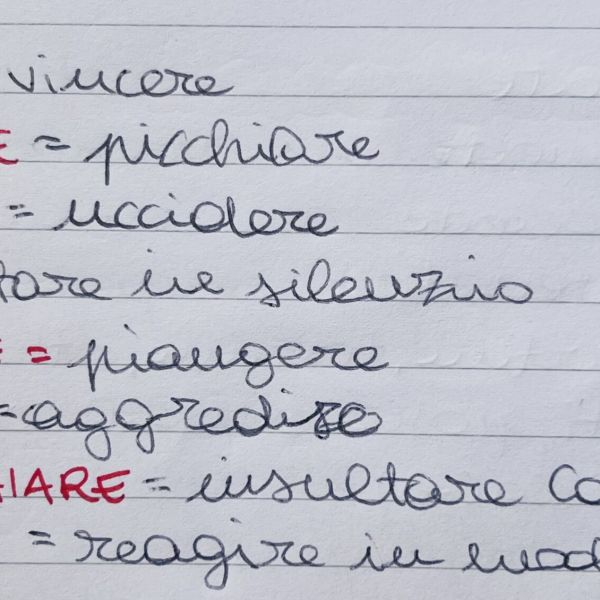 vincere
E = picchiare
= uccidere
tare in silenzio
= piangere
= aggredire
HIARE = insultare Co
= reagire in mod